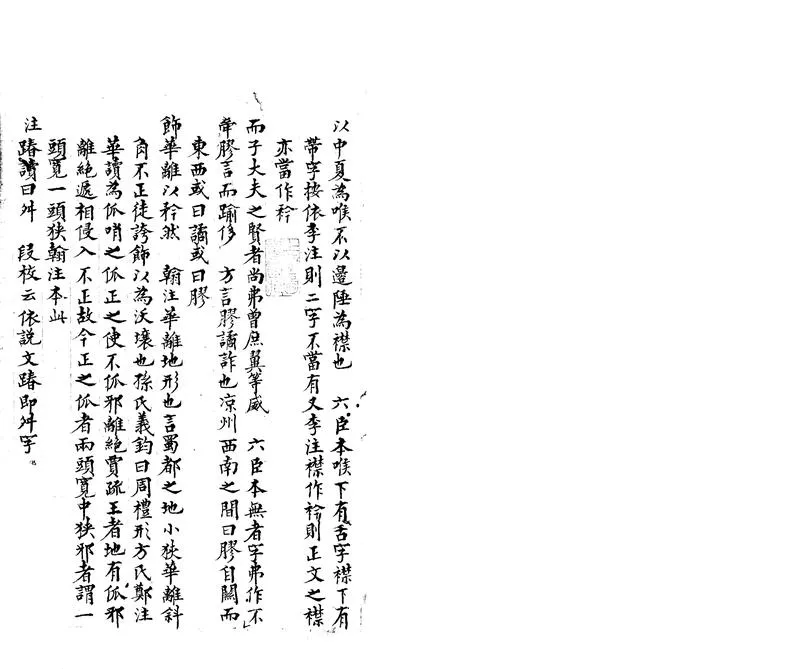 以中夏為喉不以邊陲為襟也　六臣本喉下有舌字襟下有
帶字按依李注則二字不當有又李注襟作衿則正文之襟
亦當作衿
而子大夫之賢者尚弗曾庶翼等威　六臣本無者字弗作不
牽膠言而踰侈　方言膠譎詐也凉州西南之間曰膠自關而
東西或曰譎或曰膠
飾華離以矜然　翰注華離地形也言蜀都之地小狹華離斜
角不正徒誇飾以為沃壤也孫氏義鈞曰周禮形方氏鄭注
華讀為㐲哨之㐲正之使不㐲邪離絕賈疏王者地有㐲邪
離絕遞相侵入不正故今正之㐲者兩頭寬中狹邪者謂一
頭寬一頭狹翰注本此
注踳讀曰舛　段校云依說文踳即舛字